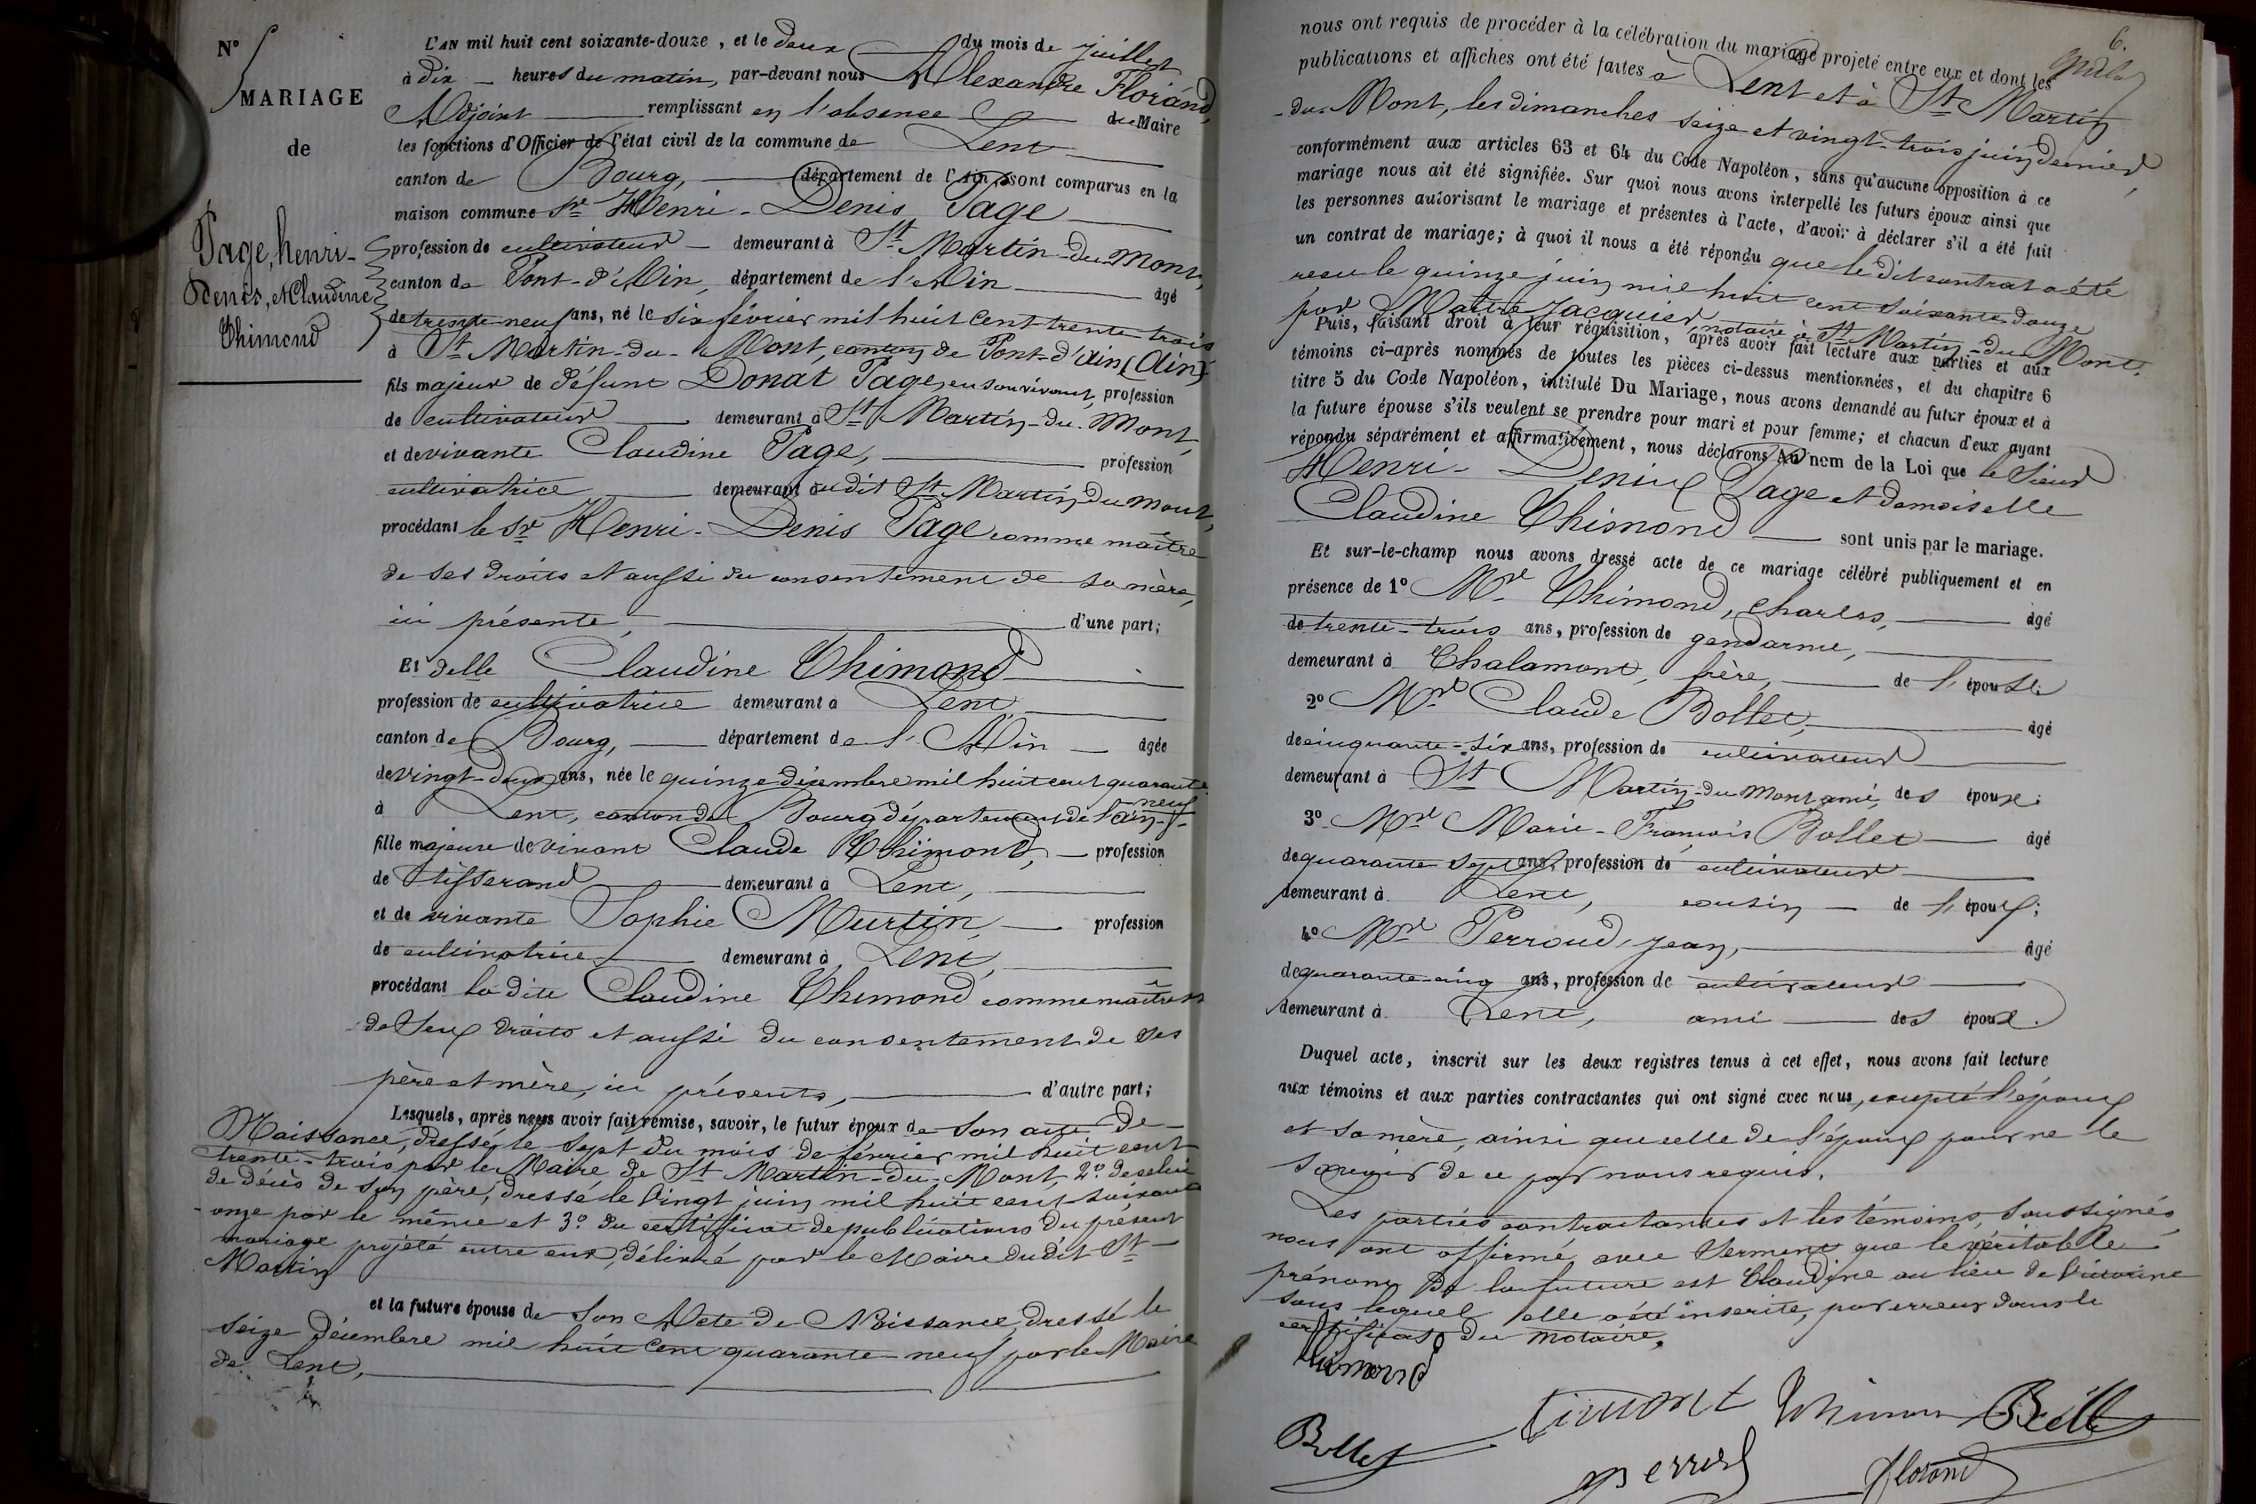 N°
MARIAGE
de
Page, henri-
Denis, et Claudine
Thimond
L'AN mil huit cent soixante-douze, et le deux du mois de juillet
à dix heures du matin, par-devant nous Alexandre Florand,
Adjoint remplissant en l'absence du Maire
les fonctions d'Officier de l'état civil de la commune de Lent
canton de Bourg, département de l'Ain, sont comparus en la
maison commune Sr Henri-Denis Page
profession de cultivateur demeurant à St Martin-du-Mont,
canton de Pont-d'Ain, département de l'Ain âgé
de trente-neuf ans, né le six février mil huit cent trente-trois
à St Martin-du-Mont, canton de Pont-d'Ain (Ain)
fils majeur de défunt Donat Page, en son vivant, profession
de cultivateur demeurant à St Martin-du-Mont,
et de vivante Claudine Page, profession
cultivatrice demeurant audit St Martin du Mont,
procédant le Sr Henri-Denis Page comme maître
de ses droits et aussi du consentement de sa mère,
ici présente, d'une part;
Et delle Claudine Thimond
profession de cultivatrice demeurant à Lent
canton de Bourg, département de l'Ain âgée
de vingt-deux ans, née le quinze décembre mil huit cent quarante-
neuf
à Lent, canton de Bourg département de l'ain
fille majeure de vivant Claude Thimond, profession
de Tisserand demeurant à Lent,
et de vivante Sophie Murtin, profession
de cultivatrice demeurant à Lent,
procédant la dite Claudine Thimond comme maîtresse
de ses droits et aussi du consentement de ses
père et mère, ici présents, d'autre part;
Lesquels, après nous avoir fait remise, savoir, le futur époux de son acte de
Naissance, dressé le sept du mois de février mil huit cent
trente-trois par le Maire de St Martin-du-Mont, 2° de celui
de décès de son père, dressé le vingt juin mil huit cent soixante
onze par le même et 3° du certificat de publications du présent
mariage projeté entre eux, délivré par le Maire dudit St
Martin
et la future épouse de son Acte de Naissance, dressé le
seize décembre mil huit cent quarante-neuf par le Maire
de Lent,
6.
nous ont requis de procéder à la célébration du mariage projeté entre eux et dont les
publications et affiches ont été faites à Lent et à St Martin
-du-Mont, les dimanches seize et vingt-trois juin dernier,
conformément aux articles 63 et 64 du Code Napoléon, sans qu'aucune opposition à ce
mariage nous ait été signifiée. Sur quoi nous avons interpellé les futurs époux ainsi que
les personnes autorisant le mariage et présentes à l'acte, d'avoir à déclarer s'il a été fait
un contrat de mariage; à quoi il nous a été répondu que le dit contrat a été
reçu le quinze juin mil huit cent soixante-douze
par Maître Jacquier, notaire à St Martin-du-Mont.
Puis, faisant droit à leur réquisition, après avoir fait lecture aux parties et aux
témoins ci-après nommés de toutes les pièces ci-dessus mentionnées, et du chapitre 6
titre 5 du Code Napoléon, intitulé Du Mariage, nous avons demandé au futur époux et à
la future épouse s'ils veulent se prendre pour mari et pour femme; et chacun d'eux ayant
répondu séparément et affirmativement, nous déclarons au nom de la Loi que le Sieur
Henri-Denis Page et demoiselle
Claudine Thimond sont unis par le mariage.
Et sur-le-champ nous avons dressé acte de ce mariage célébré publiquement et en
présence de 1° Mr Thimond, Charles, âgé
de trente-trois ans, profession de gendarme,
demeurant à Chalamont, frère, de l'épouse;
2° Mr Claude Bollet, âgé
de cinquante-six ans, profession de cultivateur
demeurant à St Martin-du-Mont ami, des époux;
3° Mr Marie-François Bollet âgé
de quarante sept ans, profession de cultivateur
demeurant à Lent, cousin de l'époux;
4° Mr Perroud, Jean, âgé
de quarante-cinq ans, profession de cultivateur
demeurant à Lent, ami des époux.
Duquel acte, inscrit sur les deux registres tenus à cet effet, nous avons fait lecture
aux témoins et aux parties contractantes qui ont signé avec nous, excepté l'époux
et sa mère, ainsi que celle de l'épouse pour ne le
savoir de ce par nous requis.
Les parties contractantes et les témoins, soussignés
nous ont affirmé avec serment que le véritable
prénom de la future est Claudine au lieu de Victorine
sous lequel elle a été inscrite, par erreur dans le
certificat du notaire.
Thimond
timont Thimon Bolle
Bollet
perroud Florand